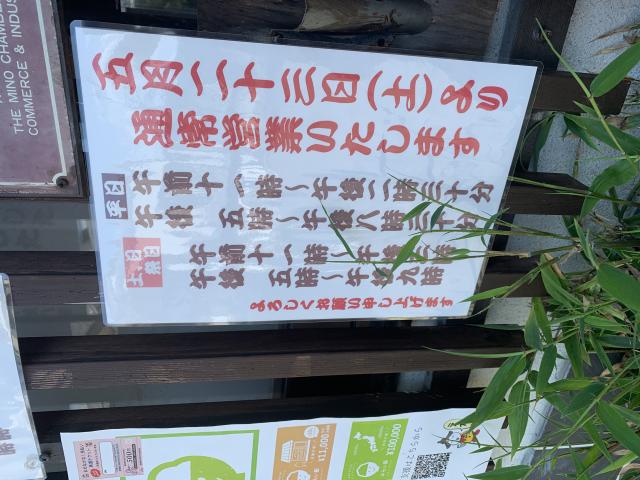 五月二十三日(土)より
通常営業いたします
平日
午前十一時～午後二時三十分
午後 五時～午後八時三十分
土、日
祭日
午前十一時～午後 時
午後 五時～午後九時
よろしくお願い申し上げます
THE MINO CHAMBE
COMMERCE & INDUS
500
¥11,000